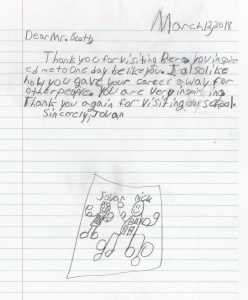 March 13, 2018
Dear Mr. Scott,
Thank you for visiting Bierce. you inspire
ed me to one day be like you. I also like
how you gave your career away for
other people. You are very inspiring.
Thank you again for visiting our school.
Sincerely, Jovan
Jovan nick